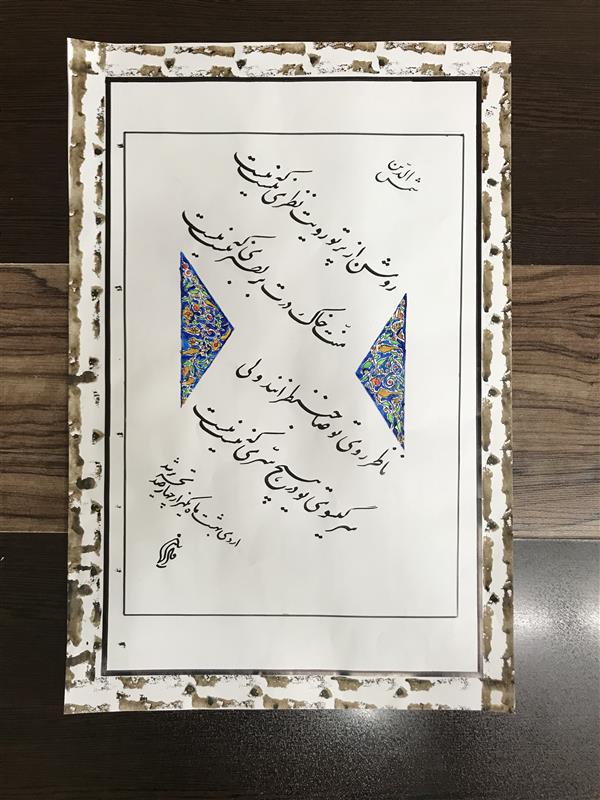 شمس الدّین
روشن از پرتو رویت نظری نیست که نیست
منّت خاک درت بر بصری نیست که نیست
ناظر روی تو صاحبنظرانند ولی
سر گیسوی تو در هیچ سری نیست که نیست
اردی بهشت ماه یکهزار چهارصد
تحریر شد